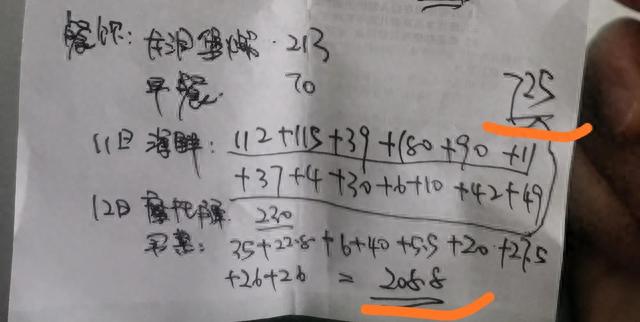 餐饮: 213
早餐: 70
725
11日 海鲜: 112+115+39+180+90+11
+37+4+30+6+10+42+49
12日 230
买菜: 35+22.8+6+40+5.5+20+27.5
+26+26 = 208.8